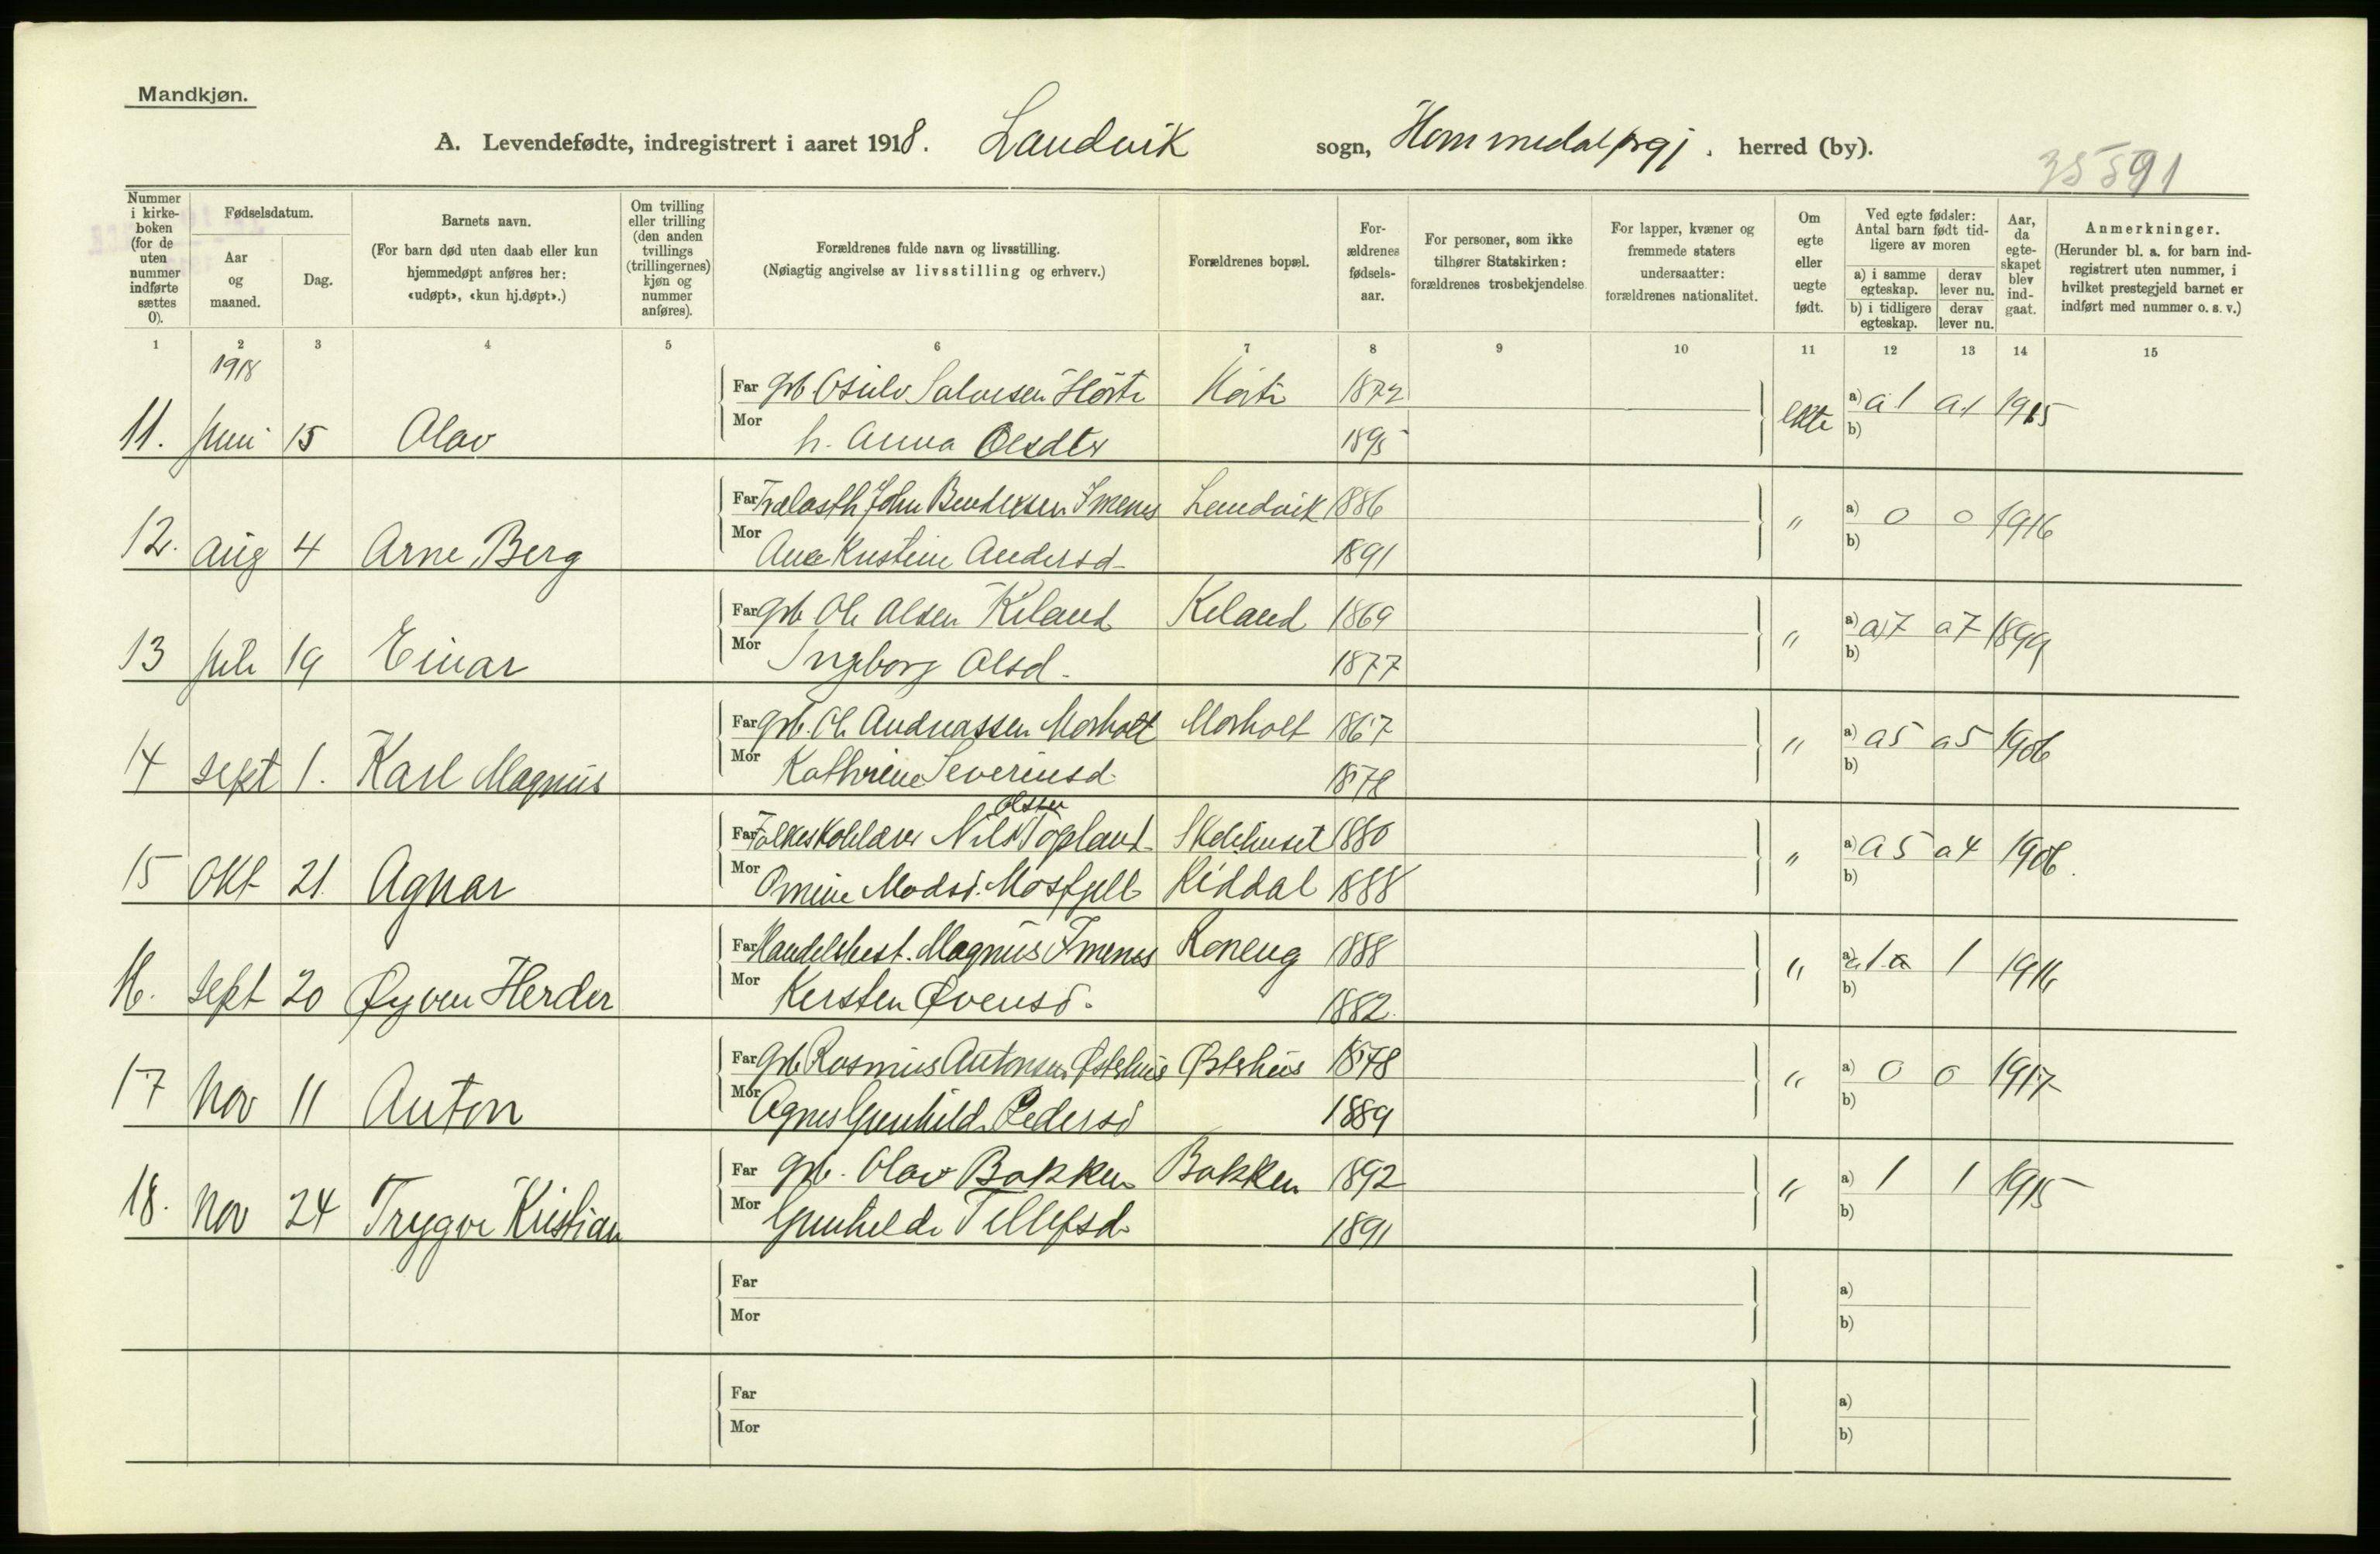 Mandkjøn.
A. Levendefødte, indregistrert i aaret 1918. Landvik sogn, Hommedal prgj. herred (by).
35591
Nummer i kirkeboken (for de uten nummer indførte sættes 0).
Fødselsdatum.
Aar og maaned.
Dag.
Barnets navn.
(For barn død uten daab eller kun hjemmedøpt anføres her: «udøpt», «kun hj.døpt».)
Om tvilling eller trilling (den anden tvillings (trillingernes) kjøn og nummer anføres).
Forældrenes fulde navn og livsstilling.
(Nøiagtig angivelse av livsstilling og erhverv.)
Forældrenes bopæl.
Forældrenes fødselsaar.
For personer, som ikke tilhører Statskirken: forældrenes trosbekjendelse
For lapper, kvæner og fremmede staters undersaatter: forældrenes nationalitet.
Om egte eller uegte født.
Ved egte fødsler: Antal barn født tidligere av moren
a) i samme egteskap. derav lever nu.
b) i tidligere egteskap. derav lever nu.
Aar, da egteskapet blev indgaat.
Anmerkninger.
(Herunder bl. a. for barn indregistrert uten nummer, i hvilket prestegjeld barnet er indført med nummer o. s. v.)
1 2 3 4 5 6 7 8 9 10 11 12 13 14 15
1918
Far Grb. Osulv Salvesen Hørte Hørte 1872
11. Juni 15 Olav ekte a) a 1 a 1 1915
Mor h. Anna Olsdtr 1895 b)
Far John Bendiksen Imenes Landvik 1886
12. Aug 4 Arne Berg " a) 0 0 1916
Mor Kristine Andersd. 1891 b)
Far Grb Ole Olsen Kiland Kiland 1869
13 Juli 19 Einar " a) a) 7 a 7 1899
Mor Ingeborg Olsd. 1877 b)
Far Grb. Ole Andreassen Morholt Morholt 1867
14 Sept 1. Karl Magnus " a) a 5 a 5 1906
Mor Kathrine Severinsd. 1878 b)
Olsen
Far Folkeskolelærer Nils Topland Skolehuset 1880
15 Okt 21. Agnar " a) a 5 a 4 1906.
Mor Madsd. Mosfjell Riddal 1888 b)
Far Handelsbest. Magnus Imenes Roneug 1888
16. Sept 20 Øyven Herder " a) a 1 a 1 1916
Mor Kirsten Øvensd. 1882. b)
Far Grb Rasmus Antonsen Østehus Østerhus 1878
17 Nov 11 Anton " a) 0 0 1917
Mor Agnes Gunhilde Pedersd 1889 b)
Far Grb. Olav Bakken Bakken 1892
18. Nov 24 Trygve Kristian " a) 1 1 1915
Mor Gunhilde Tellefsd. 1891 b)
Far a)
Mor b)
Far a)
Mor b)